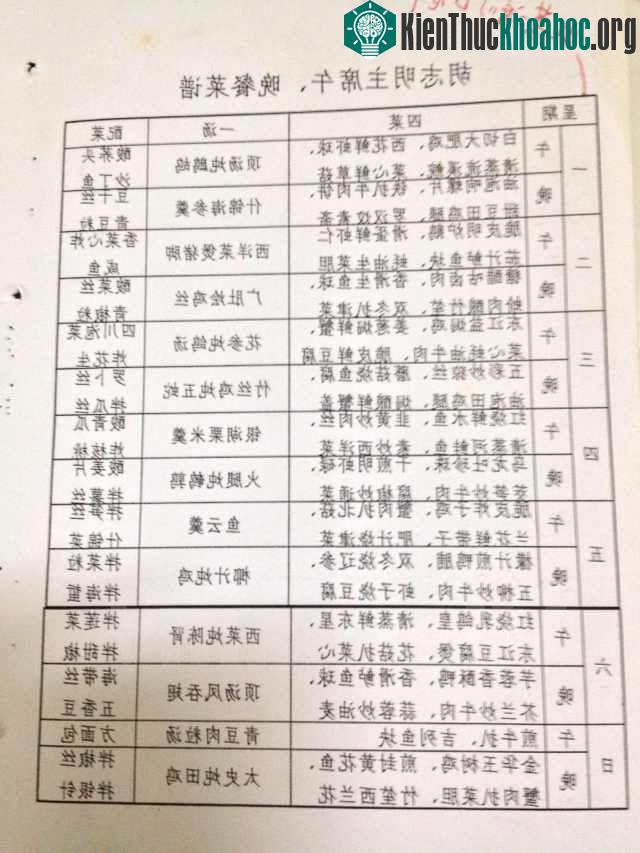 KienThuckhoahoc.org
胡志明主席午、晚餐菜谱
星期 四菜 一汤 配菜
一 午 白切大肥鸡、西花鲜虾球、 顶汤炖鹧鸪 酸荞头
菜心鲜草菇 沙丁鱼
晚 油泡响螺片、铁扒牛肉饼、 什锦海参羹 豆干丝
甜豆田鸡腿、罗汉炆素斋 青豆粒
二 午 脆皮明炉鹅、滑蛋鲜虾仁 西洋菜煲猪脚 香菜心炸
茄汁鲈鱼块、蚝油生菜胆 咸鱼
晚 糖醋咕卤肉、香滑生鱼球、 广肚烩鸡丝 酸菜丝
蛤肉酿竹笙、双冬扒津菜 青椒粒
三 午 东江盐焗鸡、姜葱焗鲜蟹、 花参炖鸽汤 四川泡菜
菜心蚝油牛肉、脆皮鲜豆腐 炸花生
晚 五彩炒猄丝、蘑菇烧鱼腐、 竹丝鸡炖五蛇 罗卜丝
油泡田鸡腿、焗酿鲜蟹盖 拌瓜丝
四 午 红烧鲜水鱼、韭黄炒肉丝、 银湖粟米羹 酸青瓜
清蒸河鲜鱼、素炒西洋菜 炸核桃
晚 乌龙吐珍珠、干煎明虾碌 火腿炖鹌鹑 酸姜片
茭笋炒牛肉、腐椒炒通菜 拌薯丝
五 午 脆皮炸子鸡、蟹肉扒北菇、 鱼云羹 拌笋丝
兰花鲜带子、肥汁烧津菜 什锦菜
晚 檬汁煎鸭脯、双冬烧辽参、 椰汁炖鸡 拌菜粒
五柳炒牛肉、虾子烧豆腐 拌海蜇
六 午 红烧乳鸽皇、清蒸鲜东星、 西菜炖陈肾 拌莲菜
东江豆腐煲、花菇扒菜心 拌甜椒
晚 芋蓉香酥鸭、香滑鲈鱼球、 顶汤凤吞翅 海带丝
芥兰炒牛肉、蒜蓉炒油麦 五香豆
日 午 煎牛扒、吉列鱼块 青豆肉粒汤 方面包
晚 金华玉树鸡、煎封黄花鱼、 太史炖田鸡 拌椒丝
蟹肉扒菜胆、竹笙西兰花 拌银针